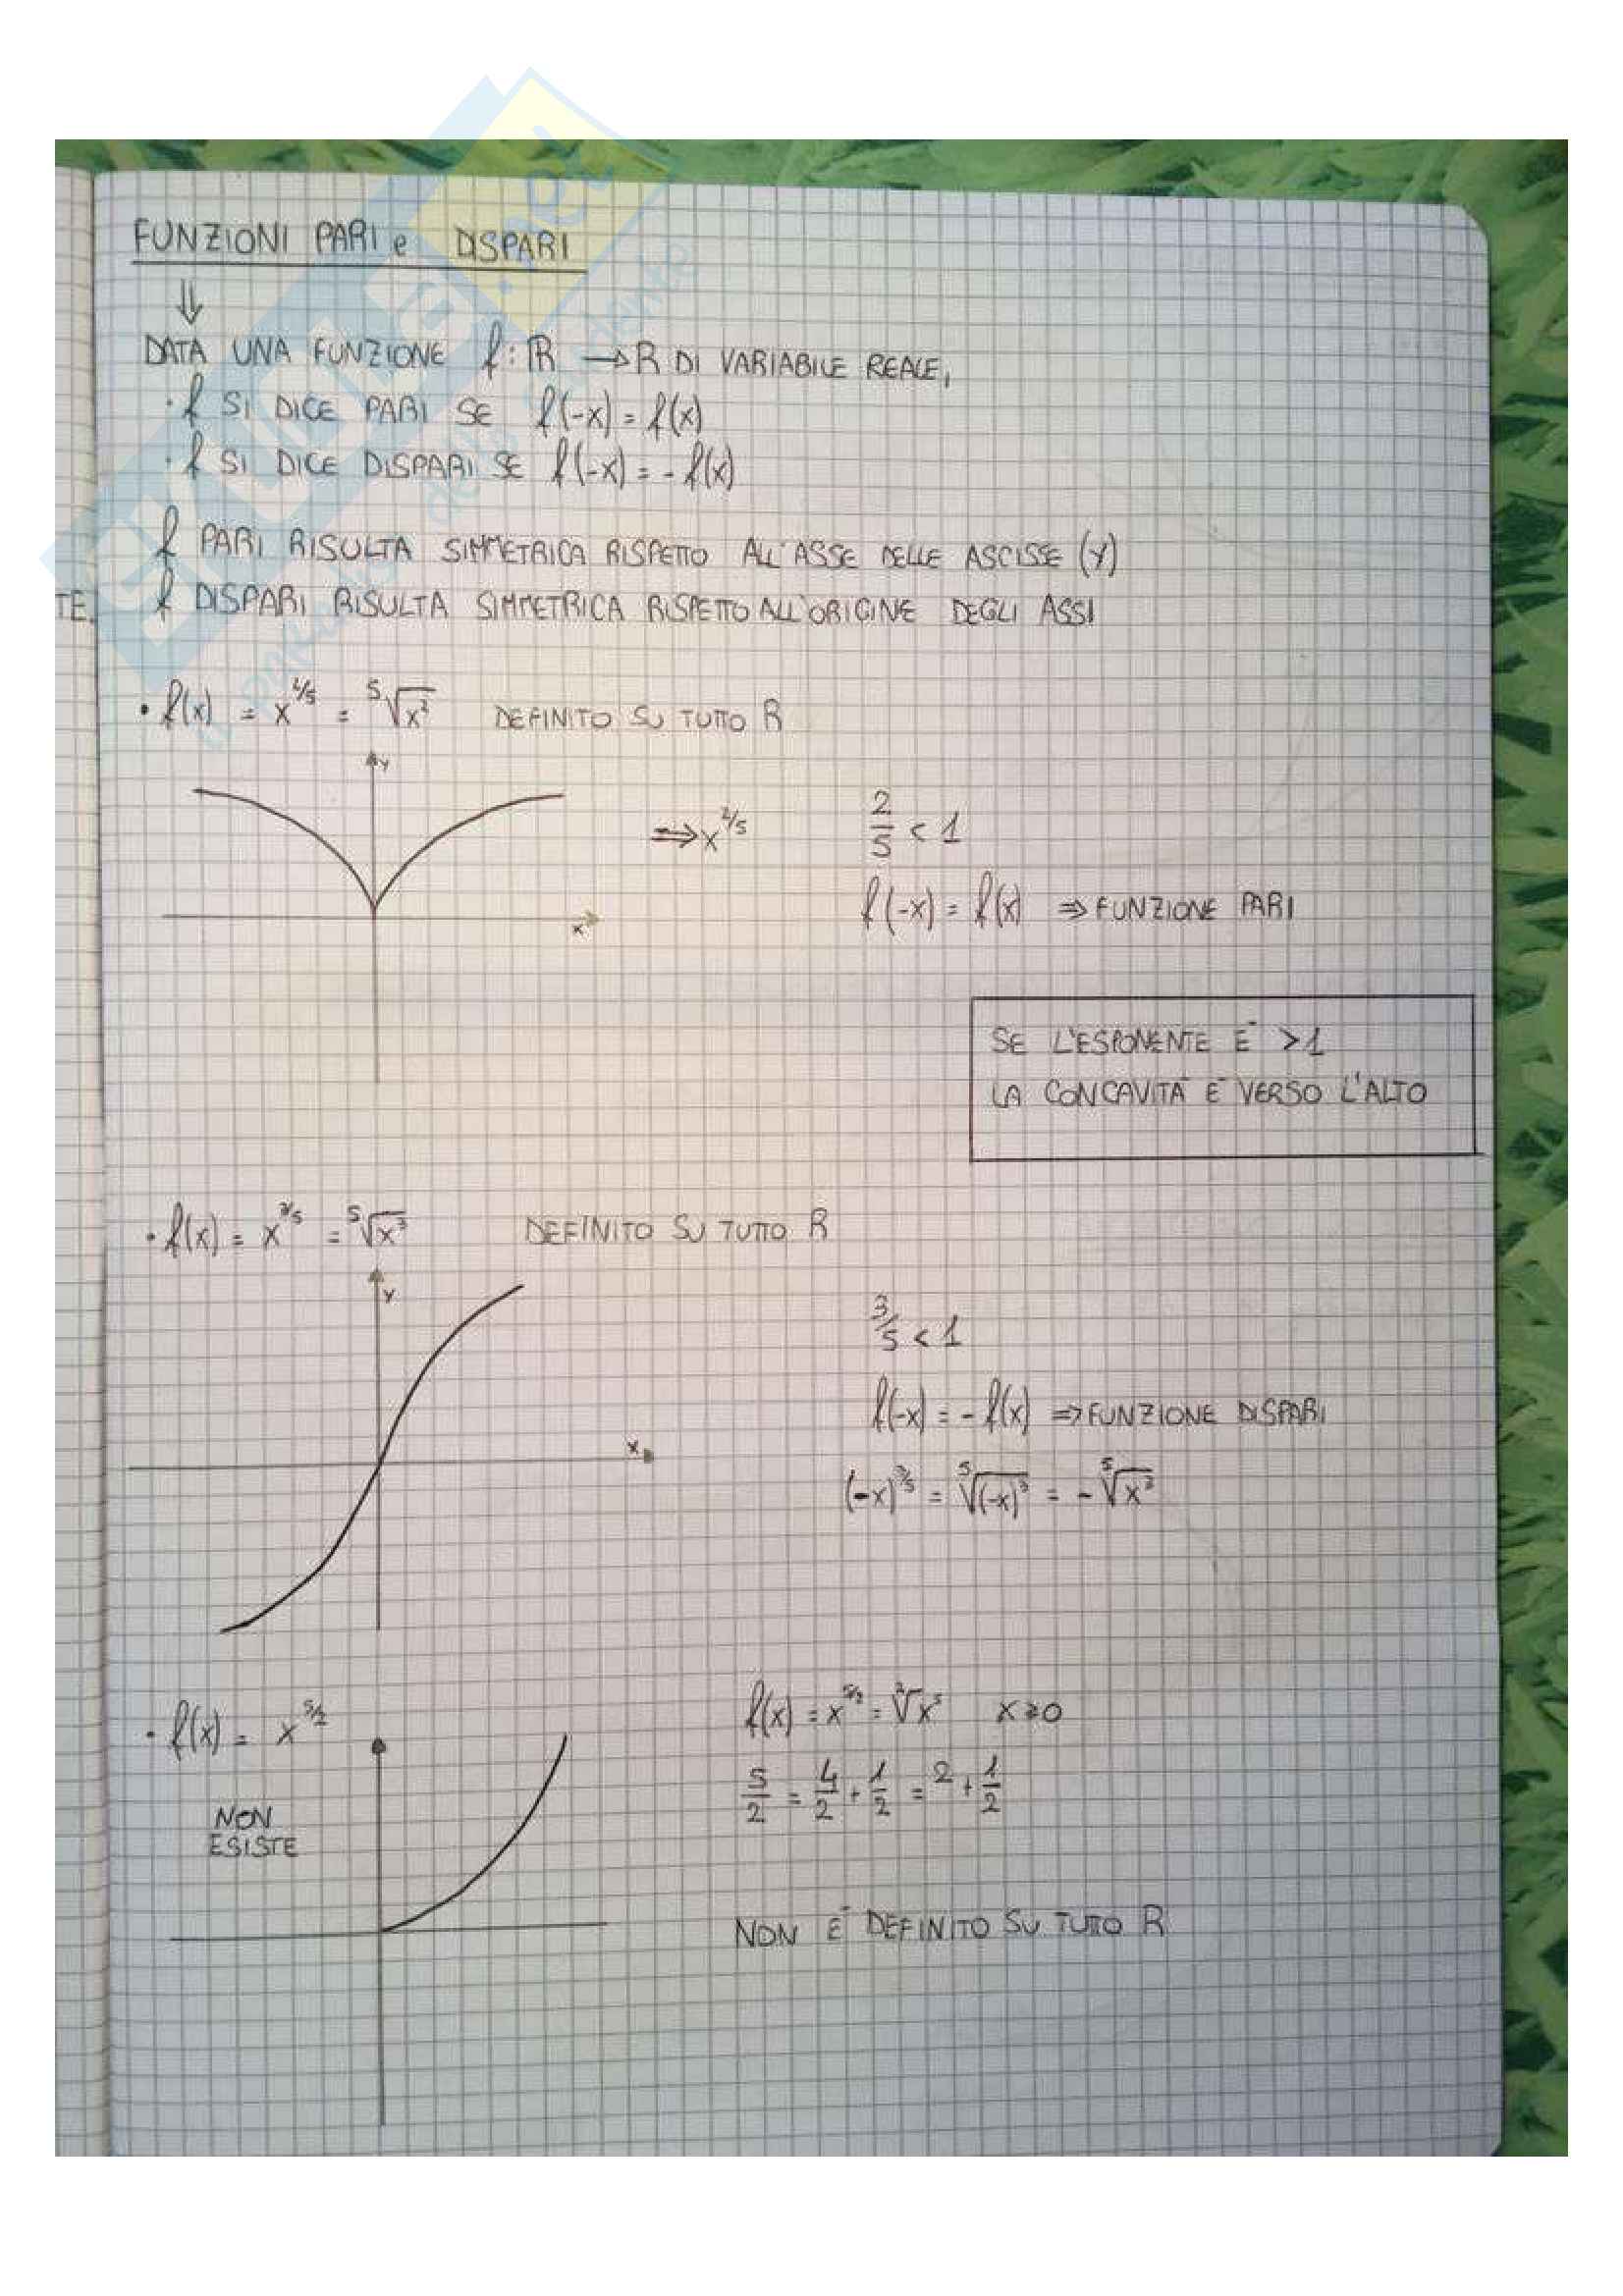 FUNZIONI PARI e DISPARI
⇓
DATA UNA FUNZIONE f: ℝ → R DI VARIABILE REALE,
· f SI DICE PARI SE f(-x) = f(x)
· f SI DICE DISPARI SE f(-x) = - f(x)
f PARI RISULTA SIMMETRICA RISPETTO ALL'ASSE DELLE ASCISSE (Y)
TE.
f DISPARI RISULTA SIMMETRICA RISPETTO ALL'ORIGINE DEGLI ASSI
• f(x) = x^2/5 = ⁵√x² DEFINITO SU TUTTO R
y
x
⇒ x^2/5
2/5 < 1
f(-x) = f(x) ⇒ FUNZIONE PARI
SE L'ESPONENTE È >1
LA CONCAVITÀ È VERSO L'ALTO
• f(x) = x^3/5 = ⁵√x³ DEFINITO SU TUTTO R
y
x
3/5 < 1
f(-x) = - f(x) ⇒ FUNZIONE DISPARI
(-x)^3/5 = ⁵√(-x)³ = - ⁵√x³
• f(x) = x^5/2
NON
ESISTE
f(x) = x^5/2 = ²√x⁵ x≥0
5/2 = 4/2 + 1/2 = 2 + 1/2
NON È DEFINITO SU TUTTO R